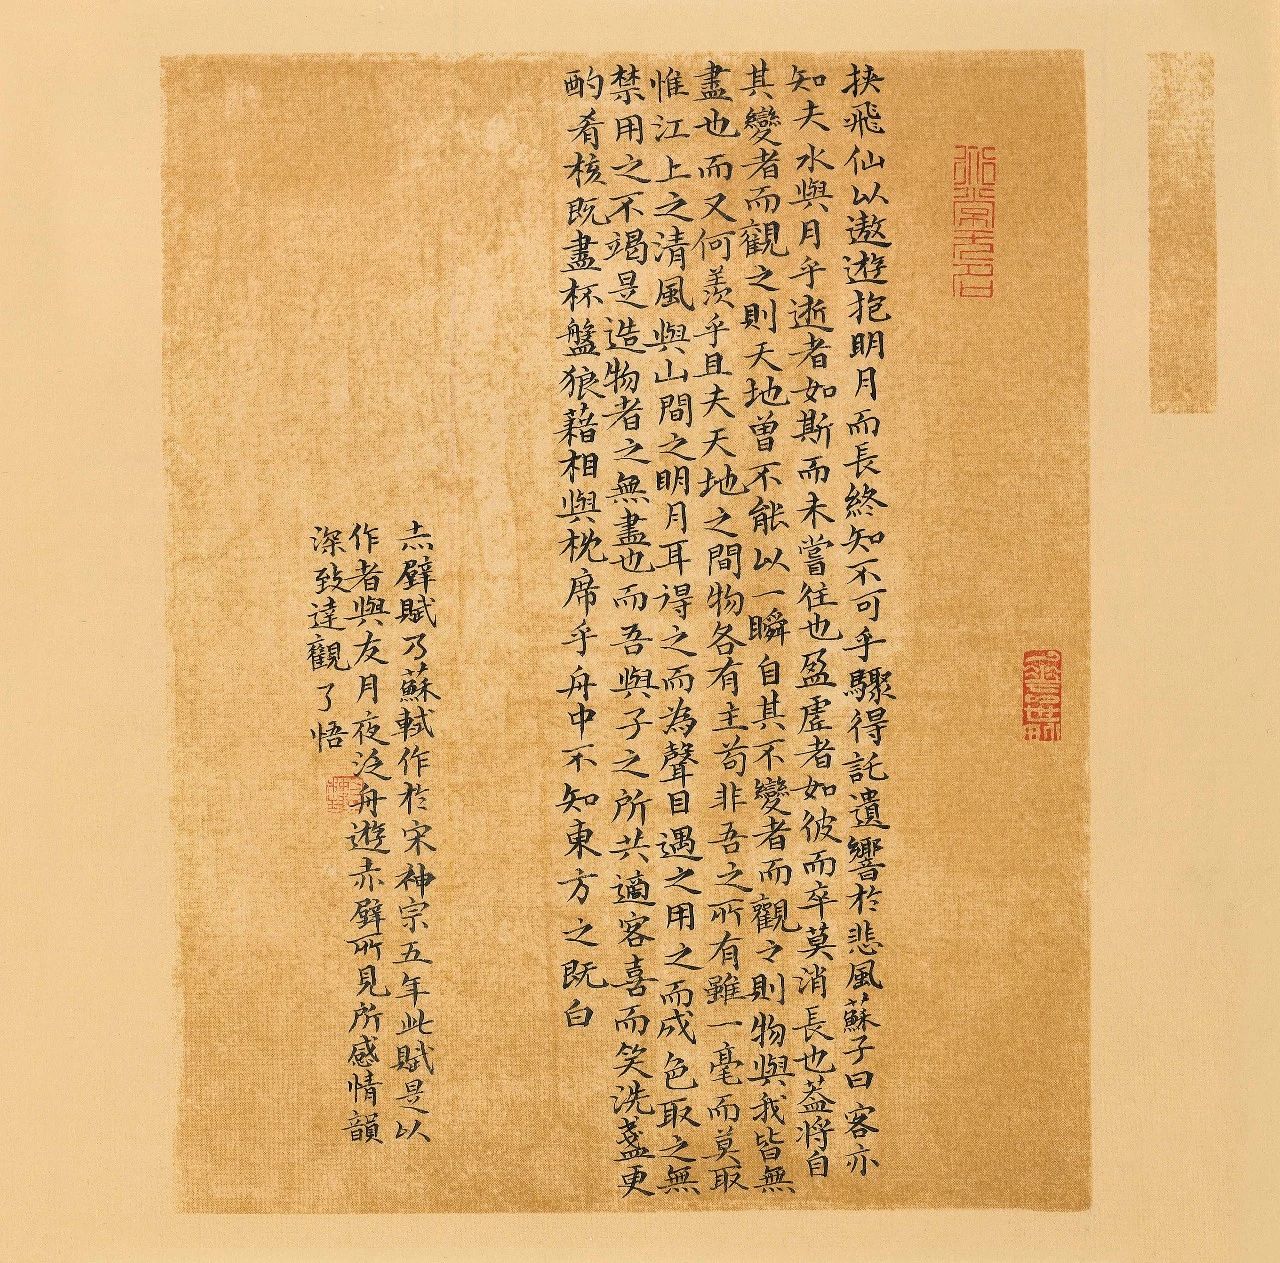 挾飛仙以遨遊抱明月而長終知不可乎驟得託遺響於悲風蘇子曰客亦
知夫水與月乎逝者如斯而未嘗往也盈虛者如彼而卒莫消長也蓋將自
其變者而觀之則天地曾不能以一瞬自其不變者而觀之則物與我皆無
盡也而又何羨乎且夫天地之間物各有主苟非吾之所有雖一毫而莫取
惟江上之清風與山間之明月耳得之而為聲目遇之用之而成色取之無
禁用之不竭是造物者之無盡也而吾與子之所共適客喜而笑洗盞更
酌肴核既盡杯盤狼藉相與枕席乎舟中不知東方之既白
赤壁賦乃蘇軾作於宋神宗五年此賦是以
作者與友月夜泛舟遊赤壁所見所感情韻
深致達觀了悟